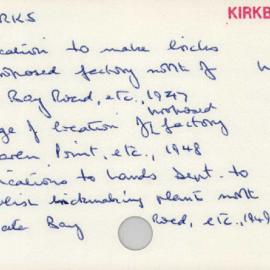 RKS
KIRKB
cation to make bricks
roposed factory north of W
Bay Road, etc., 1947
proposed
ge of location of factory
aven Point, etc., 1948
ications to Lands Dept. to
blish brickmaking plants north
ate Bay Road, etc., 1949